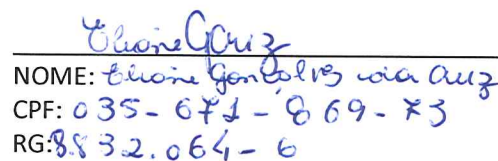 Eliane G Cruz
NOME: Eliane Gonçalves da Cruz
CPF: 035-671-869-73
RG: 8.832.064-6